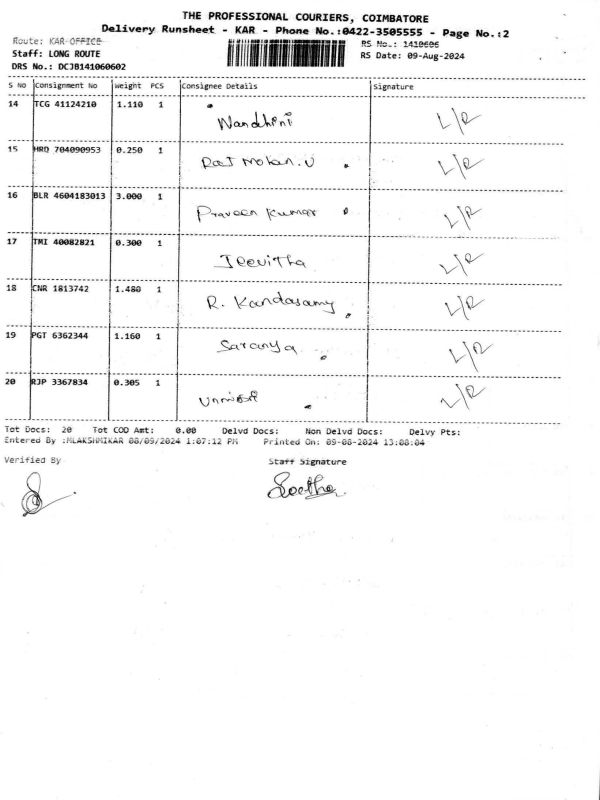 THE PROFESSIONAL COURIERS, COIMBATORE
Delivery Runsheet - KAR - Phone No.:0422-3505555 - Page No.:2
Route: KAR-OFFICE RS No.: 1410606
Staff: LONG ROUTE RS Date: 09-Aug-2024
DRS No.: DCJB141060602
S No Consignment No Weight PCS Consignee Details Signature
14 TCG 41124210 1.110 1 Nandhini L/R
15 HRD 704090953 0.250 1 Raj Mohan.V L/R
16 BLR 4604183013 3.000 1 Praveen Kumar L/R
17 TMI 40082821 0.300 1 Jeevitha L/R
18 CNR 1813742 1.480 1 R. Kandasamy L/R
19 PGT 6362344 1.160 1 Saranya L/R
20 RJP 3367834 0.305 1 L/R
Tot Docs: 20 Tot COD Amt: 0.00 Delvd Docs: Non Delvd Docs: Delvy Pts:
Entered By :MLAKSHMIKAR 08/09/2024 1:07:12 PM Printed On: 09-08-2024 13:08:04
Verified By Staff Signature
Geetha